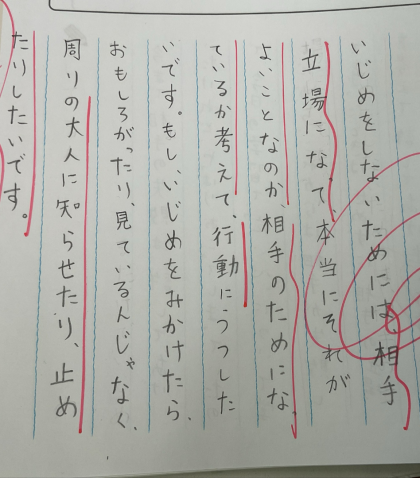 いじめをしないためには、相手
立場になって、本当にそれが
よいことなのか、相手のためにな
ているか考えて、行動にうつした
いです。もし、いじめをみかけたら、
おもしろがったり、見ているんじゃなく、
周りの大人に知らせたり、止め
たりしたいです。